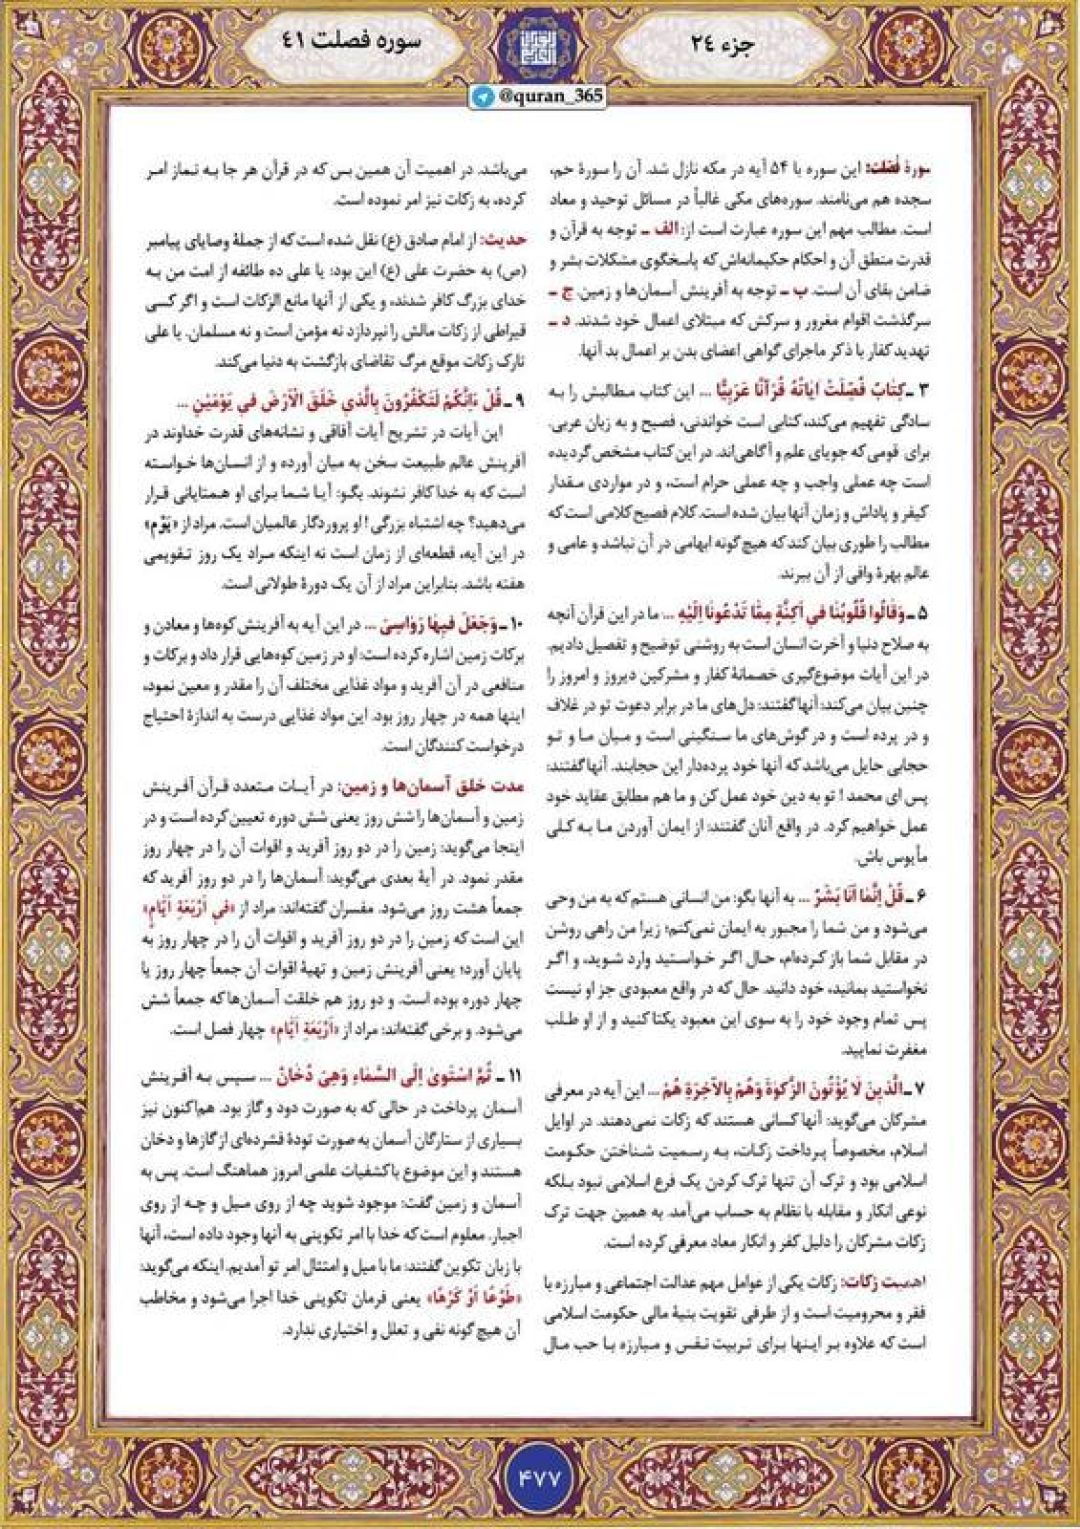 جزء ۲۴
سوره فصلت ۴۱
@quran_365
سورهٔ فصّلت: این سوره با ۵۴ آیه در مکه نازل شد. آن را سورهٔ حم،
سجده هم می‌نامند. سوره‌های مکی غالباً در مسائل توحید و معاد
است. مطالب مهم این سوره عبارت است از: الف ـ توجه به قرآن و
قدرت منطق آن و احکام حکیمانه‌اش که پاسخگوی مشکلات بشر و
ضامن بقای آن است. ب ـ توجه به آفرینش آسمان‌ها و زمین. ج ـ
سرگذشت اقوام مغرور و سرکش که مبتلای اعمال خود شدند. د ـ
تهدید کفار با ذکر ماجرای گواهی اعضای بدن بر اعمال بد آنها.
۳ ـ کِتابٌ فُصِّلَتْ ایاتُهُ قُرْآنًا عَرَبِیًّا ... این کتاب مطالبش را به
سادگی تفهیم می‌کند، کتابی است خواندنی، فصیح و به زبان عربی.
برای قومی که جویای علم و آگاهی‌اند. در این کتاب مشخص گردیده
است چه عملی واجب و چه عملی حرام است، و در مواردی مقدار
کیفر و پاداش و زمان آنها بیان شده است. کلام فصیح کلامی است که
مطالب را طوری بیان کند که هیچ گونه ابهامی در آن نباشد و عامی و
عالم بهرهٔ وافی از آن ببرند.
۵ ـ وَقالُوا قُلُوبُنا فی اَکِنَّةٍ مِمّا تَدْعُونا اِلَیْهِ ... ما در این قرآن آنچه
به صلاح دنیا و آخرت انسان است به روشنی توضیح و تفصیل دادیم.
در این آیات موضوع‌گیری خصمانهٔ کفار و مشرکین دیروز و امروز را
چنین بیان می‌کند: آنها گفتند: دل‌های ما در برابر دعوت تو در غلاف
و در پرده است و در گوش‌های ما سنگینی است و میان ما و تو
حجابی حایل می‌باشد که آنها خود پرده‌دار این حجابند. آنها گفتند:
پس ای محمد ! تو به دین خود عمل کن و ما هم مطابق عقاید خود
عمل خواهیم کرد. در واقع آنان گفتند: از ایمان آوردن ما به کلی
مأیوس باش.
۶ ـ قُلْ اِنَّما اَنَا بَشَرٌ ... به آنها بگو: من انسانی هستم که به من وحی
می‌شود و من شما را مجبور به ایمان نمی‌کنم؛ زیرا من راهی روشن
در مقابل شما باز کرده‌ام، حال اگر خواستید وارد شوید، و اگر
نخواستید بمانید، خود دانید. حال که در واقع معبودی جز او نیست
پس تمام وجود خود را به سوی این معبود یکتا کنید و از او طلب
مغفرت نمایید.
۷ ـ اَلَّذینَ لا یُؤْتُونَ الزَّکوةَ وَهُمْ بِالْاخِرَةِ هُمْ ... این آیه در معرفی
مشرکان می‌گوید: آنها کسانی هستند که زکات نمی‌دهند. در اوایل
اسلام، مخصوصاً پرداخت زکات، به رسمیت شناختن حکومت
اسلامی بود و ترک آن تنها ترک کردن یک فرع اسلامی نبود بلکه
نوعی انکار و مقابله با نظام به حساب می‌آمد. به همین جهت ترک
زکات مشرکان را دلیل کفر و انکار معاد معرفی کرده است.
اهمیت زکات: زکات یکی از عوامل مهم عدالت اجتماعی و مبارزه با
فقر و محرومیت است و از طرفی تقویت بنیهٔ مالی حکومت اسلامی
است که علاوه بر اینها برای تربیت نفس و مبارزه با حب مال
می‌باشد. در اهمیت آن همین بس که در قرآن هر جا به نماز امر
کرده، به زکات نیز امر نموده است.
حدیث: از امام صادق (ع) نقل شده است که از جملهٔ وصایای پیامبر
(ص) به حضرت علی (ع) این بود: یا علی ده طائفه از امت من به
خدای بزرگ کافر شدند، و یکی از آنها مانع الزکات است و اگر کسی
قیراطی از زکات مالش را نپردازد نه مؤمن است و نه مسلمان. یا علی
تارک زکات موقع مرگ تقاضای بازگشت به دنیا می‌کند.
۹ ـ قُلْ ءَاِنَّکُمْ لَتَکْفُرُونَ بِالَّذی خَلَقَ الْاَرْضَ فی یَوْمَیْنِ ...
این آیات در تشریح آیات آفاقی و نشانه‌های قدرت خداوند در
آفرینش عالم طبیعت سخن به میان آورده و از انسان‌ها خواسته
است که به خدا کافر نشوند. بگو: آیا شما برای او همتایانی قرار
می‌دهید؟ چه اشتباه بزرگی ! او پروردگار عالمیان است. مراد از «یَوْم»
در این آیه، قطعه‌ای از زمان است نه اینکه مراد یک روز تقویمی
هفته باشد. بنابراین مراد از آن یک دورهٔ طولانی است.
۱۰ ـ وَجَعَلَ فیها رَواسِیَ ... در این آیه به آفرینش کوه‌ها و معادن و
برکات زمین اشاره کرده است: او در زمین کوه‌هایی قرار داد و برکات و
منافعی در آن آفرید و مواد غذایی مختلف آن را مقدر و معین نمود،
اینها همه در چهار روز بود. این مواد غذایی درست به اندازهٔ احتیاج
درخواست کنندگان است.
مدت خلق آسمان‌ها و زمین: در آیات متعدد قرآن آفرینش
زمین و آسمان‌ها را شش روز یعنی شش دوره تعیین کرده است و در
اینجا می‌گوید: زمین را در دو روز آفرید و اقوات آن را در چهار روز
مقدر نمود. در آیهٔ بعدی می‌گوید: آسمان‌ها را در دو روز آفرید که
جمعاً هشت روز می‌شود. مفسران گفته‌اند: مراد از «فی اَرْبَعَةِ اَیّامٍ»
این است که زمین را در دو روز آفرید و اقوات آن را در چهار روز به
پایان آورد؛ یعنی آفرینش زمین و تهیهٔ اقوات آن جمعاً چهار روز یا
چهار دوره بوده است. و دو روز هم خلقت آسمان‌ها که جمعاً شش
می‌شود. و برخی گفته‌اند: مراد از «اَرْبَعَةِ اَیّام» چهار فصل است.
۱۱ ـ ثُمَّ اسْتَوی اِلَی السَّماءِ وَهِیَ دُخانٌ ... سپس به آفرینش
آسمان پرداخت در حالی که به صورت دود و گاز بود. هم‌اکنون نیز
بسیاری از ستارگان آسمان به صورت تودهٔ فشرده‌ای از گازها و دخان
هستند و این موضوع با کشفیات علمی امروز هماهنگ است. پس به
آسمان و زمین گفت: موجود شوید چه از روی میل و چه از روی
اجبار. معلوم است که خدا با امر تکوینی به آنها وجود داده است، آنها
با زبان تکوین گفتند: ما با میل و امتثال امر تو آمدیم. اینکه می‌گوید:
«طَوْعًا اَوْ کَرْهًا» یعنی فرمان تکوینی خدا اجرا می‌شود و مخاطب
آن هیچ گونه نفی و تعلل و اختیاری ندارد.
۴۷۷